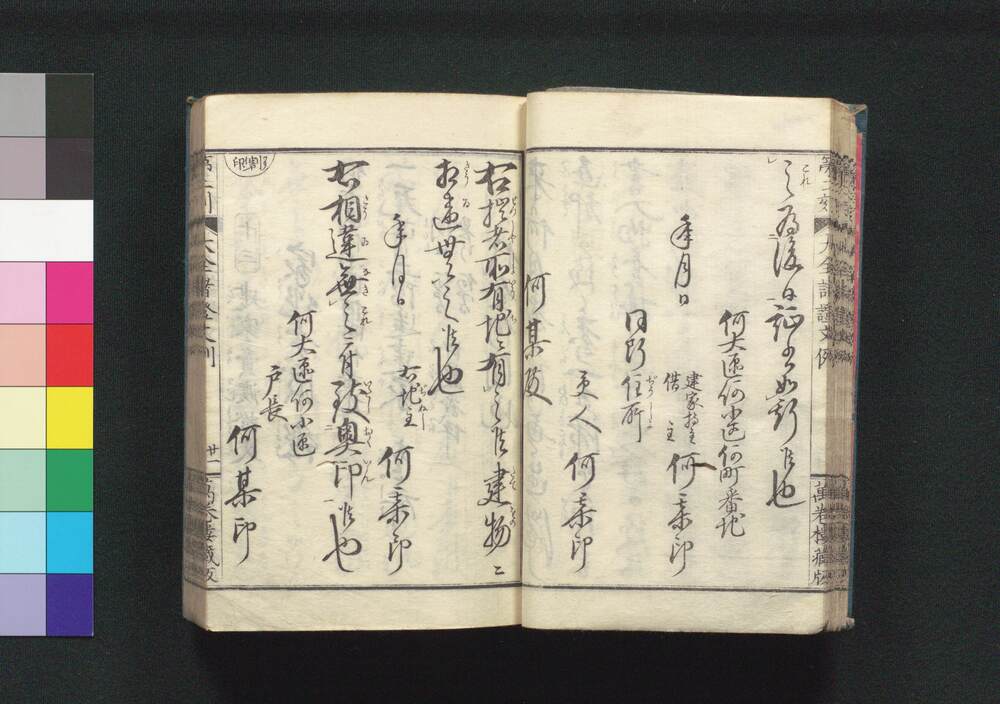 之為後日証書如斯候也
何大区何小区何町番地
建家持主
借主
何某印
年月日
同町住所
受人
何某印
何某殿
右拙者所有地ニ有之候建物ニ
相違無之候也
年月日
右地主
何某印
右相違無之ニ付致奥印候也
何大区何小区
戸長
何某印
割印
大全諸證文例
廿一
萬巻樓藏版